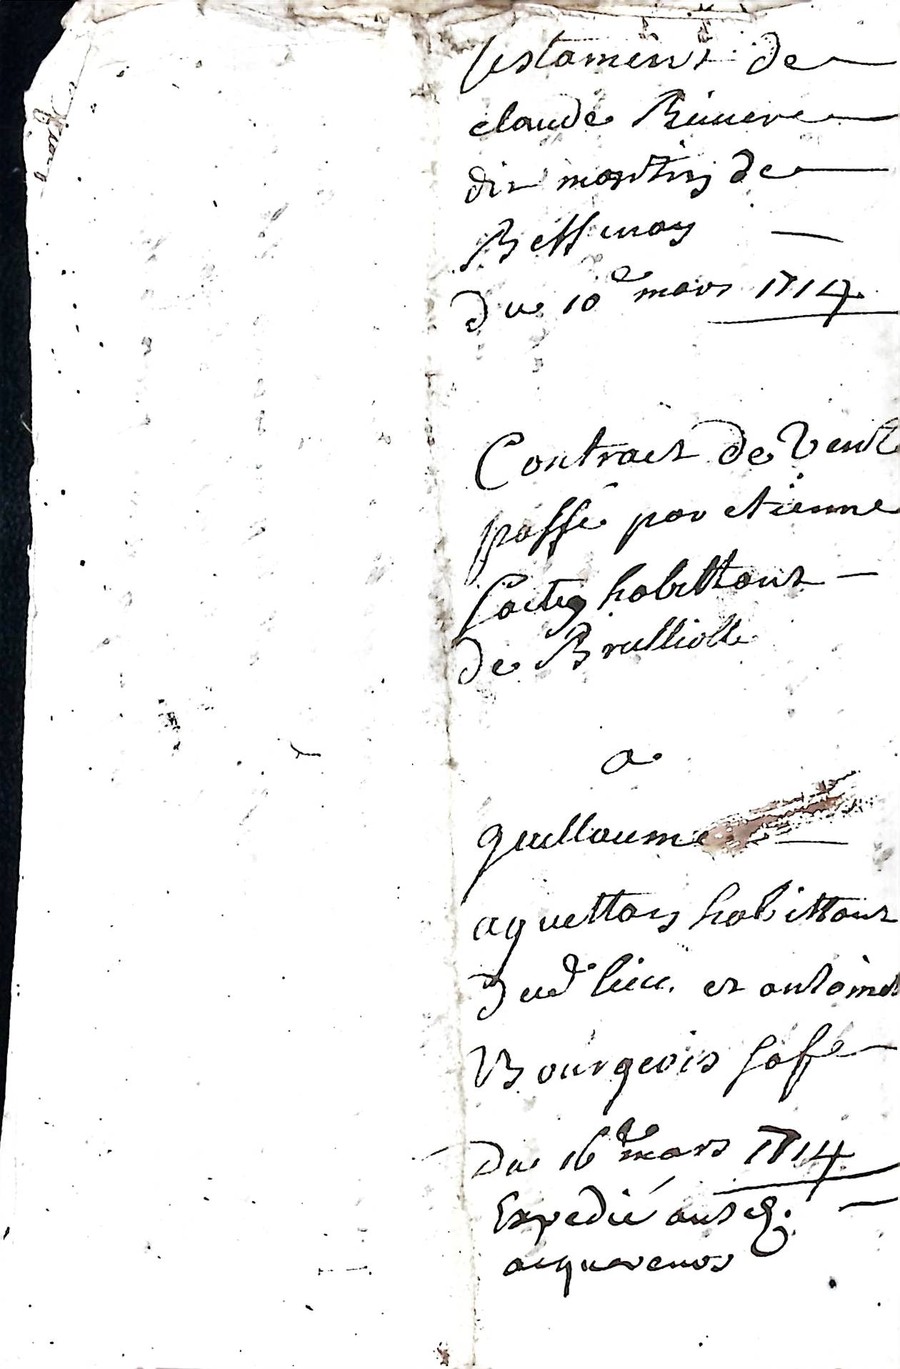 testament de
claude Riviere
dit martin de
Bessenay
du 10e mars 1714
Contract de Vente
passé par etienne
habittant
de Brulliolle
a
guillaume
aquettant habittant
dud lieu. et antoine
Bourgeois
Du 16e mars 1714
Expedié ausd.
acquereurs